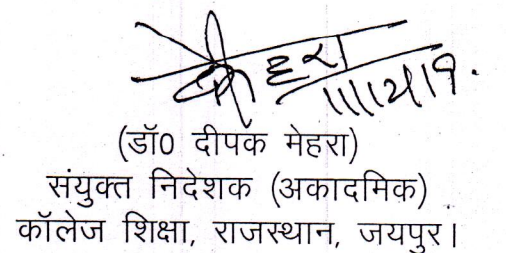 (डॉ0 दीपक मेहरा)
संयुक्त निदेशक (अकादमिक)
कॉलेज शिक्षा, राजस्थान, जयपुर।